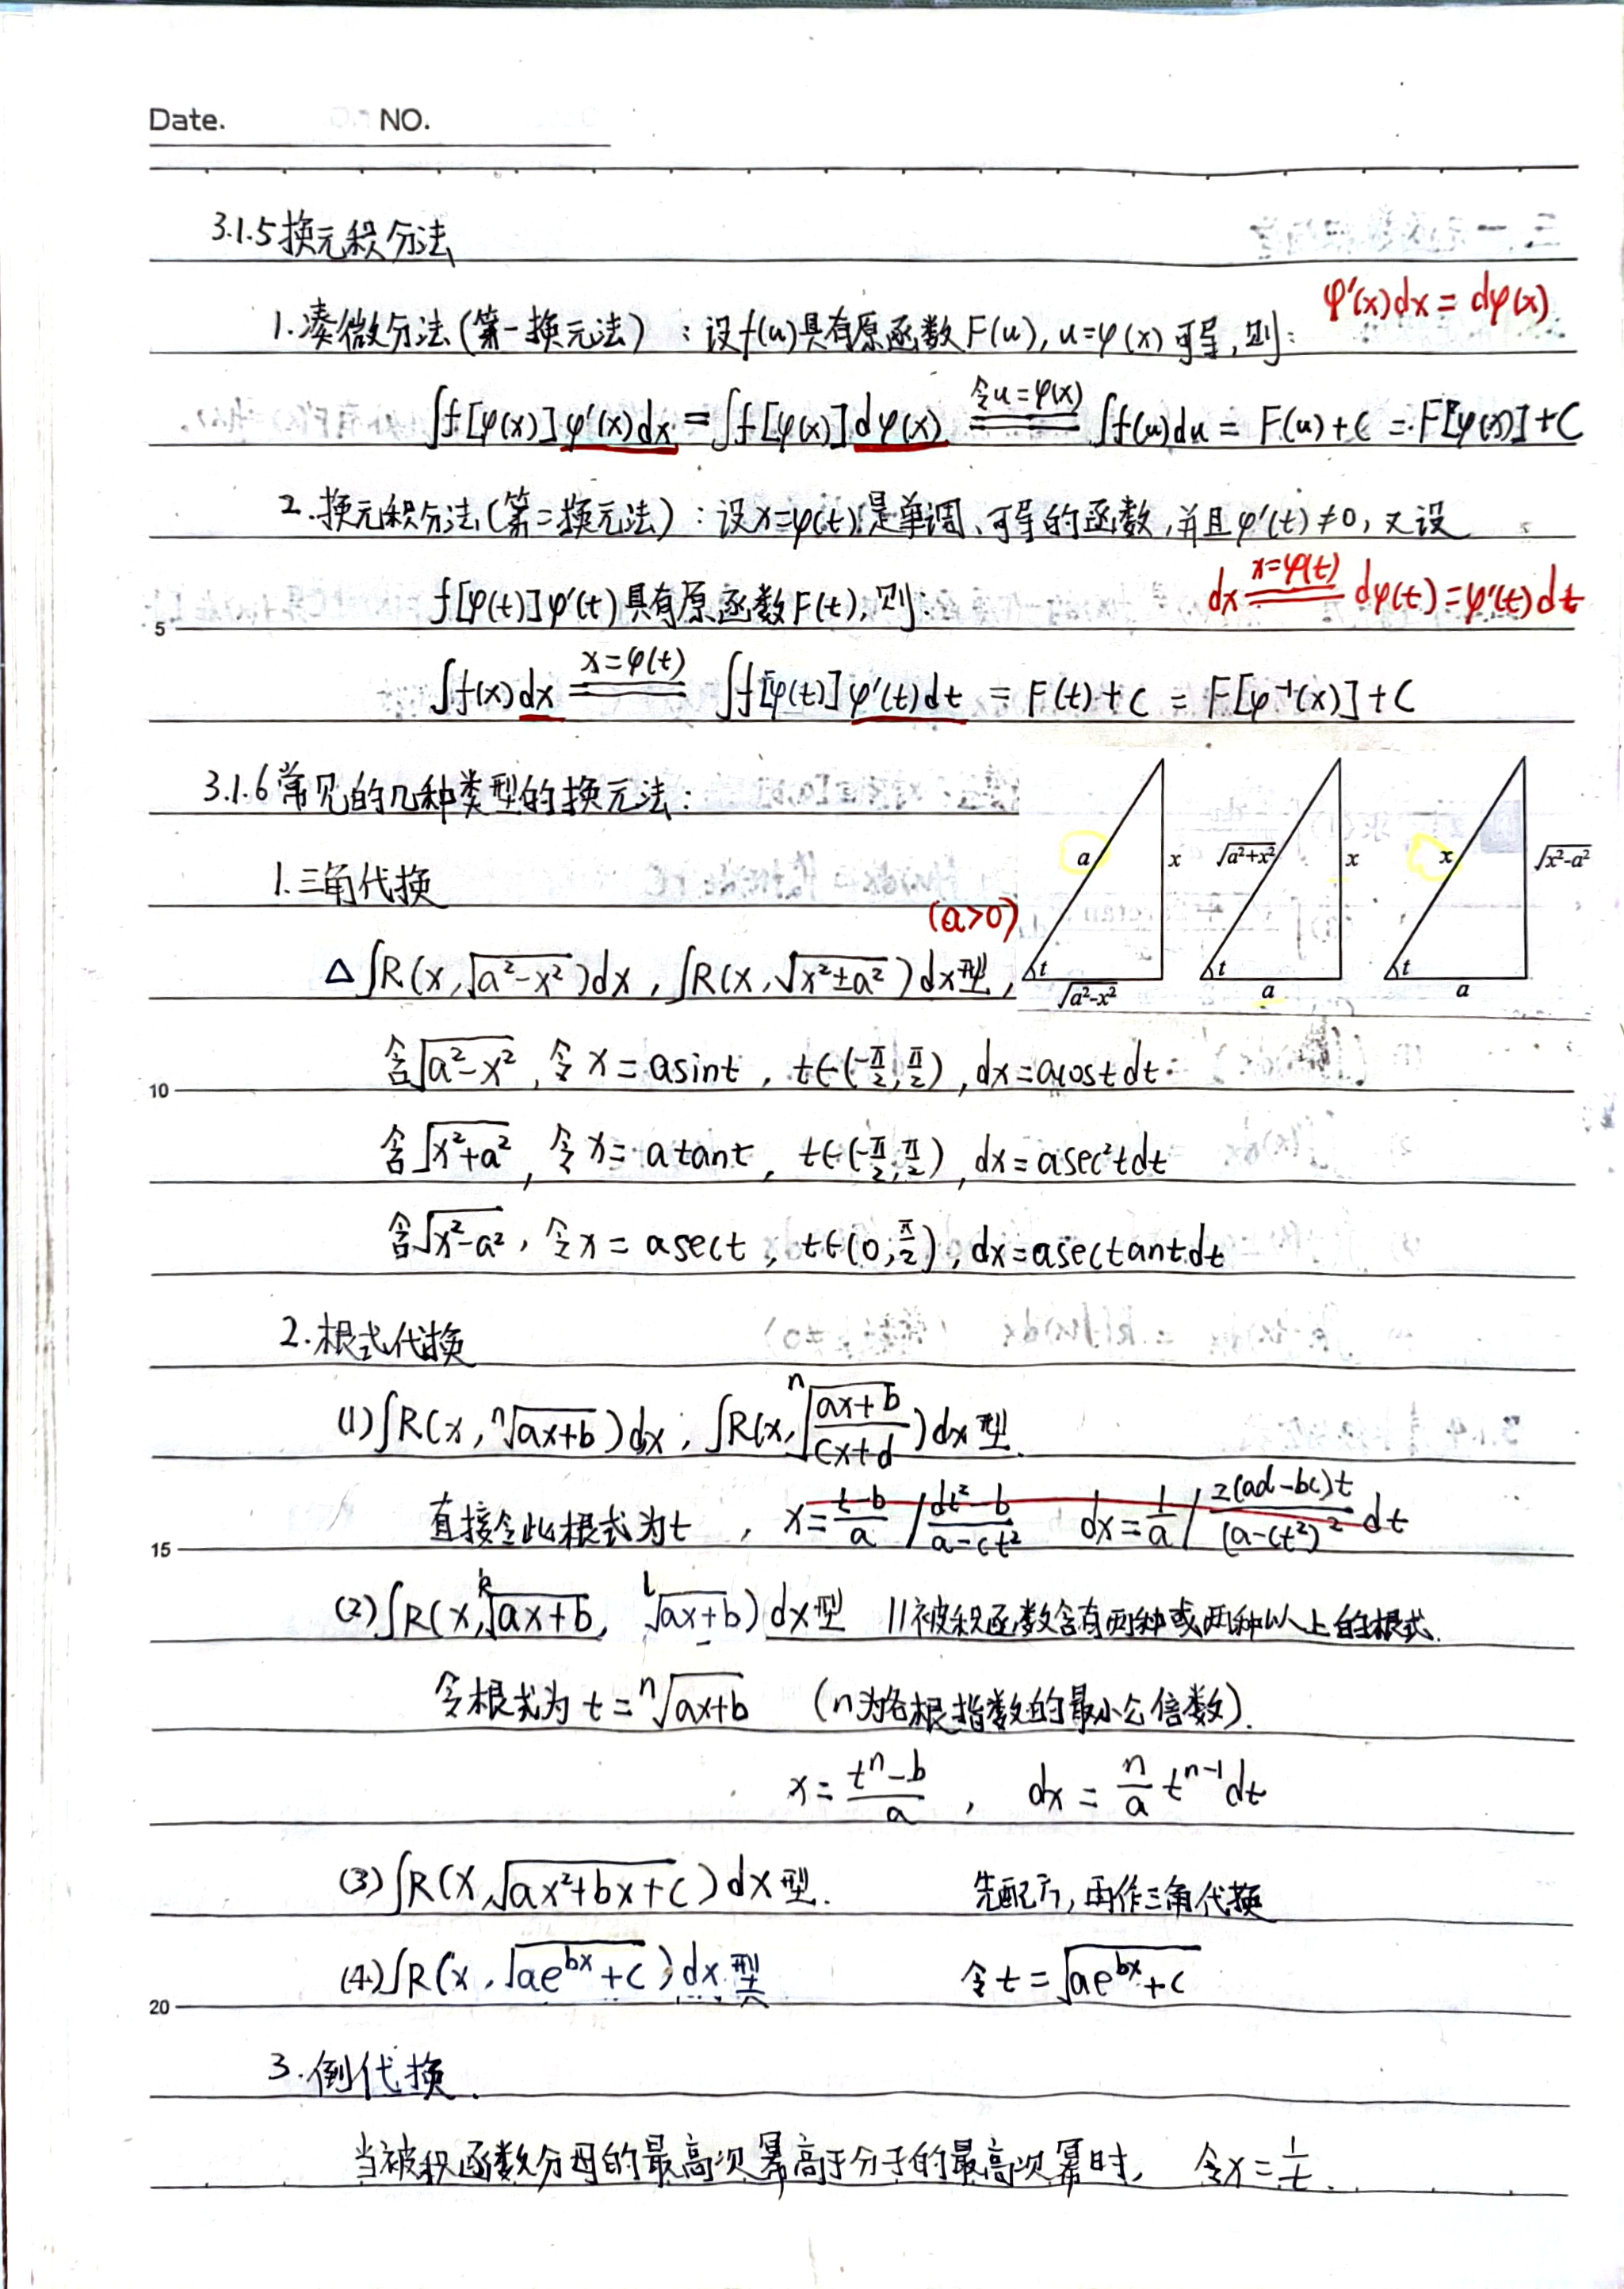 Date. NO.
3.1.5换元积分法
φ'(x)dx = dφ(x)
1.凑微分法(第一换元法):设f(u)具有原函数F(u), u=φ(x)可导,则:
∫f[φ(x)]φ'(x)dx = ∫f[φ(x)]dφ(x) ==令u=φ(x)== ∫f(u)du = F(u)+C = F[φ(x)]+C
2.换元积分法(第二换元法):设x=φ(t)是单调、可导的函数,并且φ'(t)≠0,又设
f[φ(t)]φ'(t)具有原函数F(t),则:
dx ==x=φ(t)== dφ(t)=φ'(t)dt
5
∫f(x)dx ==x=φ(t)== ∫f[φ(t)]φ'(t)dt = F(t)+C = F[φ⁻¹(x)]+C
3.1.6常见的几种类型的换元法:
a x √a²+x² x x √x²-a²
1.三角代换
(a>0)
t √a²-x² t a t a
△∫R(x,√a²-x²)dx, ∫R(x,√x²±a²)dx型,
含√a²-x²,令x=asint, t∈(-π/2,π/2), dx=acostdt
10
含√x²+a²,令x=atant, t∈(-π/2,π/2), dx=asec²tdt
含√x²-a²,令x=asect, t∈(0,π/2), dx=asectantdt
2.根式代换
(1)∫R(x,ⁿ√ax+b)dx; ∫R(x,ⁿ√(ax+b)/(cx+d))dx型.
直接令此根式为t, x=(t-b)/a / (dt²-b)/(a-ct²) dx=1/a / 2(ad-bc)t/(a-ct²)² dt
15
(2)∫R(x,ᵏ√ax+b, ˡ√ax+b)dx型 //被积函数含有两种或两种以上的根式.
令根式为t=ⁿ√ax+b (n为各根指数的最小公倍数).
x=(tⁿ-b)/a, dx=n/a tⁿ⁻¹dt
(3)∫R(x,√ax²+bx+c)dx型. 先配方,再作三角代换
(4)∫R(x,√ae^bx+c)dx型 令t=√ae^bx+c
20
3.倒代换.
当被积函数分母的最高次幂高于分子的最高次幂时, 令x=1/t.